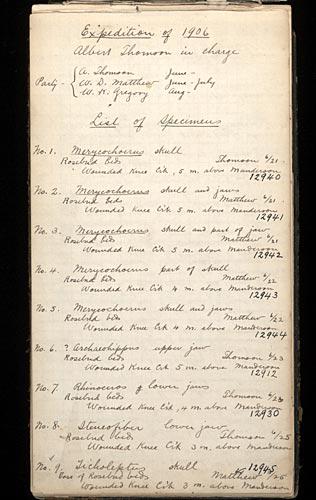 Expedition of 1906
Albert Thomson in charge
Party - A. Thomson June -
W. D. Matthew June - July
W. K. Gregory Aug -
List of Specimens
No. 1. Merycochoerus skull
Rosebud beds Thomson 6/21
Wounded Knee Crk, 5 m. above Manderson
12940
No. 2. Merycochoerus skull and jaws
Rosebud beds Matthew 6/21
Wounded Knee Crk 5 m. above Manderson
12941
No. 3. Merycochoerus skull and part of jaw
Rosebud beds Matthew 6/21
Wounded Knee Crk 5 m. above Manderson
12942
No. 4. Merycochoerus part of skull
Rosebud beds Matthew 6/22
Wounded Knee Crk 4 m. above Manderson
12943
No. 5. Merycochoerus skull and jaws
Rosebud beds Matthew 6/22
Wounded Knee Crk 4 m. above Manderson
12944
No. 6. ? Archaeohippus upper jaw
Rosebud beds Thomson 6/23
Wounded Knee Crk 5 m. above Manderson
12912
No. 7 Rhinoceros lower jaws
Rosebud beds Thomson 6/23
Wounded Knee Crk, 4 m. above Manderson
12930
No. 8. Steneofiber lower jaw
Rosebud beds Thomson 6/25
Wounded Knee Crk 3 m. above Manderson
No. 9. Ticholeptus skull 12945
Base of Rosebud beds Matthew /25
Wounded Knee Crk 3 m. above Manderson